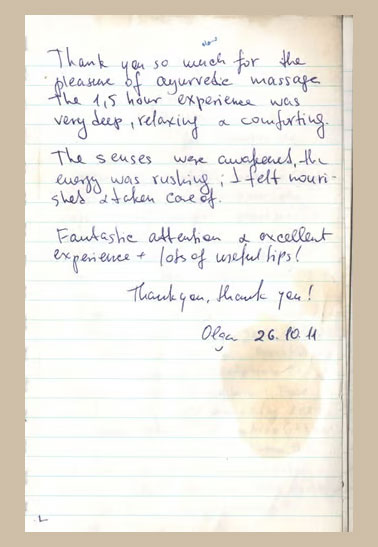 Thank you so much for the
pleasure of ayurvedic massage
the 1,5 hour experience was
very deep, relaxing & comforting.
The senses were awakened, the
energy was rushing; I felt nouri-
shed & taken care of.
Fantastic attention & excellent
experience + lots of useful tips!
Thank you, thank you!
Olga 26.10.11